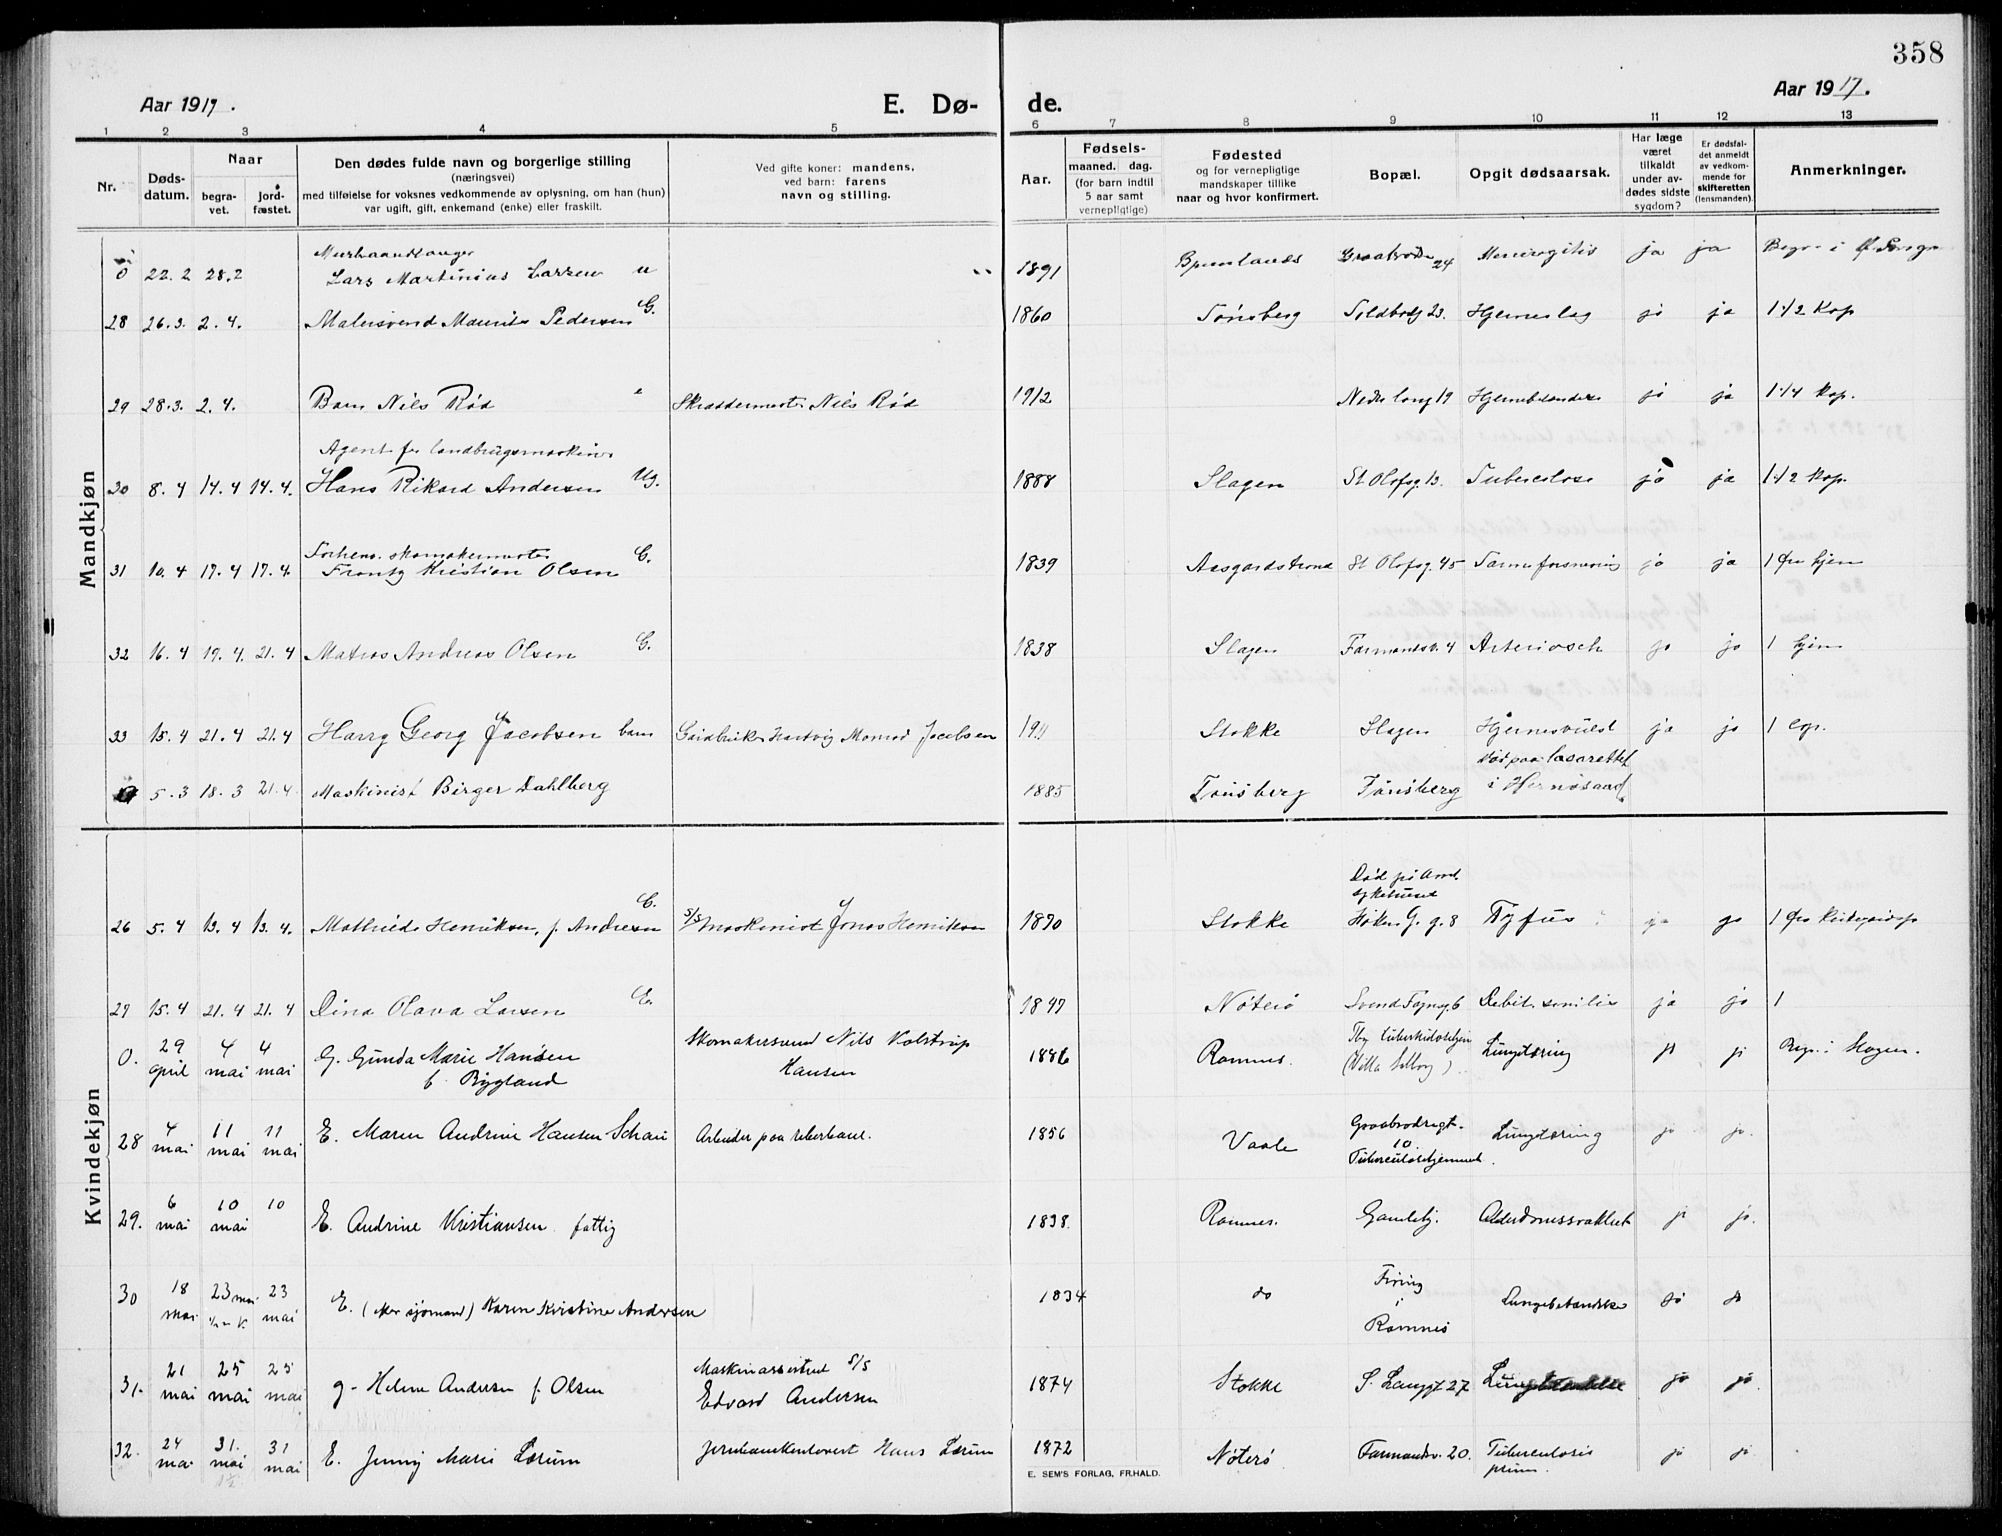 358
Aar 1917.
E. Dø-
de.
Aar 1917.
1 2 3 4 5 6 7 8 9 10 11 12 13
Nr.
Døds-
datum.
Naar
begra-
vet.
jord-
fæstet.
Den dødes fulde navn og borgerlige stilling
(næringsvei)
med tilføielse for voksnes vedkommende av oplysning, om han (hun)
var ugift, gift, enkemand (enke) eller fraskilt.
Ved gifte koner: mandens,
ved barn: farens
navn og stilling.
Aar.
Fødsels-
maaned. dag.
(for barn indtil
5 aar samt
vernepligtige)
Fødested
og for vernepligtige
mandskaper tillike
naar og hvor konfirmert.
Bopæl.
Opgit dødsaarsak.
Har læge
været
tilkaldt
under av-
dødes sidste
sygdom?
Er dødsfal-
det anmeldt
av vedkom-
mende for
skifteretten
(lensmanden).
Anmerkninger.
Mandkjøn
Murhaandlanger
0 22.2 28.2 Lars Martinius Larsen u 1891 24 Meningitis ja ja Begr. i
28 26.3. 2.4. Malersvend Maurits Pedersen G. 1860 Tønsberg 23. Hjerneslag ja ja 1 1/2 Kap
29 28.3. 2.4. Barn Nils Rød Skræddermester Nils Rød 1912 Nedre lang 19 ja ja 1 1/4 Kap.
Agent for landbrugsmaskiner
30 8.4 14.4 14.4. Hans Rikard Andersen Ug. 1888 Slagen St Olofsg. 13. Tuberculose ja ja 1 1/2 Kap.
Forhenv. skomakermester
31 10.4 17.4 17.4. Frantz Kristian Olsen E. 1839 Aasgardstrand St Olofsg. 45 Tarmforsnevring ja ja 1 Øre hjem
32 16.4 19.4. 21.4 Matros Andreas Olsen G. 1838 Slagen Farmandsv. 4 Arteriosch ja ja 1 hjem
33 15.4 21.4 21.4 Harry Georg Jacobsen barn Gaardbruker Hartvig Jacobsen 1911 Stokke Slagen Hjernesvulst ja ja 1
5.3 18.3 21.4. Maskinist Birger Dahlberg 1885 Tønsberg Tønsberg død paa lasarettet
i Hernøsand
Kvindekjøn
Død på Amt
sykehuset
26 5.4 13.4 13.4. Mathilde Henriksen, f. Andresen G. S/S maskinist Jonas Henriksen 1890 Stokke G. g. 8 Tyfus ja ja 1
27 15.4 21.4 21.4 Dina Olava Larsen E. 1847 Nøterø Svend Føynsg. 6 Debit. senilis ja ja 1
0. 29
april 4
mai 4
mai G. Gunda Marie Hansen
f. Bygland Skomakersvend Nils Volstrup
Hansen 1886 Ramnes. Tbg tuberkulosehjem
(Villa Solborg) Lungetæring ja ja Begr. i Slagen.
28 4
mai 11
mai 11
mai E. Maren Andrine Hansen Schau Arbeider paa reberbane. 1856 Vaale Graabrødregt.
10
Tuberculosehjemmet. Lungetæring ja ja.
29. 6
mai 10
mai 10 E. Andrine Kristiansen fattig 1838. Ramnes. Gamlehj. Alderdomssvakhet ja ja.
30 18
mai 23 mai 23
mai E. (efter sjømand) Karen Kristine Andersen 1834 do Firing
i
Ramnes Lungebetændelse ja ja
31. 21
mai 25
mai 25
mai g- Helene Andersen f. Olsen Maskinassistent S/S
Edvard Andersen 1874 Stokke S. Langgt 27 ja ja.
32. 24
mai 31.
mai 31
mai E. Jenny Marie Lærum Jernbanekonvert Hans Lærum 1872 Nøterø Farmandsv. 20. Tuberculosis
pulm. ja ja
E. SEM'S FORLAG, FR.HALD.